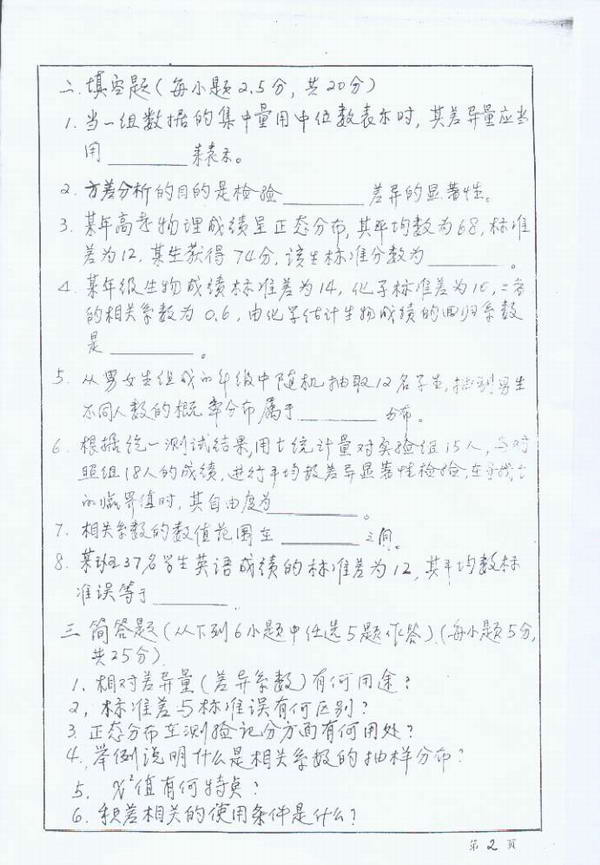 二. 填空题(每小题2.5分,共20分)
1. 当一组数据的集中量用中位数表示时,其差异量应当
用________来表示。
2. 方差分析的目的是检验________差异的显著性。
3. 某年高考物理成绩呈正态分布,其平均数为68,标准
差为12,某生获得74分,该生标准分数为________。
4. 某年级生物成绩标准差为14,化学标准差为16,二者
的相关系数为0.6,由化学估计生物成绩的回归系数
是________。
5. 从男女生组成的年级中随机抽取12名学生,抽到男生
不同人数的概率分布属于________分布。
6. 根据统一测试结果,用t统计量对实验组15人,与对
照组18人的成绩,进行平均数差异显著性检验,在寻找t
的临界值时,其自由度为________。
7. 相关系数的数值范围在________之间。
8. 某班37名学生英语成绩的标准差为12,其平均数标
准误等于________.
三 简答题(从下列6小题中任选5题作答).(每小题5分,
共25分)
1. 相对差异量(差异系数)有何用途?
2. 标准差与标准误有何区别?
3. 正态分布在测验记分方面有何用处?
4. 举例说明什么是相关系数的抽样分布?
5. χ²值有何特点?
6. 积差相关的使用条件是什么?
第 2 页